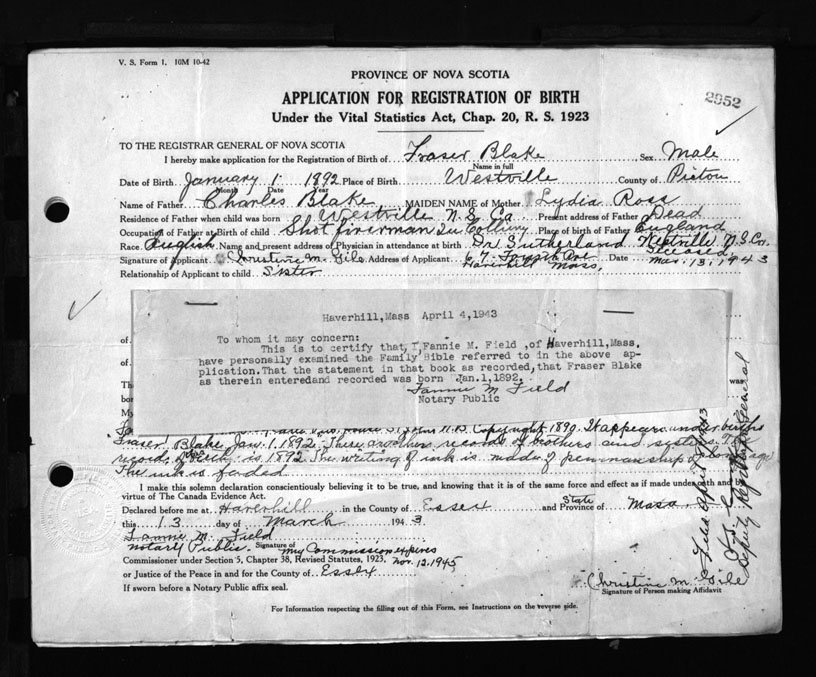 V. S. Form 1. 10M 10-42
PROVINCE OF NOVA SCOTIA
2952
APPLICATION FOR REGISTRATION OF BIRTH
Under the Vital Statistics Act, Chap. 20, R. S. 1923
TO THE REGISTRAR GENERAL OF NOVA SCOTIA
I hereby make application for the Registration of Birth of Fraser Blake Sex Male
Name in full
Date of Birth January 1 1892 Place of Birth Westville County of Pictou
Month Date Year
Name of Father Charles Blake MAIDEN NAME of Mother Lydia Ross
Residence of Father when child was born Westville N.S. Co Present address of Father Dead
Occupation of Father at Birth of child Shot fireman In Colliery Place of birth of Father England
Race English Name and present address of Physician in attendance at birth Dr. Sutherland Westville N.S. Co.
Deceased
Signature of Applicant Christine M. Gile Address of Applicant 67 Ave Date Mar. 13, 1943
Haverhill Mass.
Relationship of Applicant to child Sister
Haverhill,Mass April 4,1943
To whom it may concern:
This is to certify that, I Fannie M. Field ,of Haverhill,Mass.
have personally examined the Family Bible referred to in the above ap-
plication.That the statement in that book as recorded,that Fraser Blake
as therein enteredand recorded was born Jan.1,1892.
Fannie M Field
Notary Public
of
of
Th
was
bor
My
Copyright 1890. It appears under births
Fraser Blake Jan. 1. 1892. These are other records of brothers and sisters. The
record, is 1892 The writing of ink is made of penmanship of age
The ink is faded.
I make this solemn declaration conscientiously believing it to be true, and knowing that it is of the same force and effect as if made under oath and by
virtue of The Canada Evidence Act.
Declared before me at Haverhill in the County of Essex and State Province of Mass
this 13 day of March 1943
Fannie M. Field
Notary Public. Signature of My Commission expires
Commissioner under Section 5, Chapter 38, Revised Statutes, 1923, Nov. 12, 1945
or Justice of the Peace in and for the County of Essex
If sworn before a Notary Public affix seal.
Christine M. Gile
Signature of Person making Affidavit
For Information respecting the filling out of this Form, see Instructions on the reverse side.
Filed April 1943
Deputy Registrar General